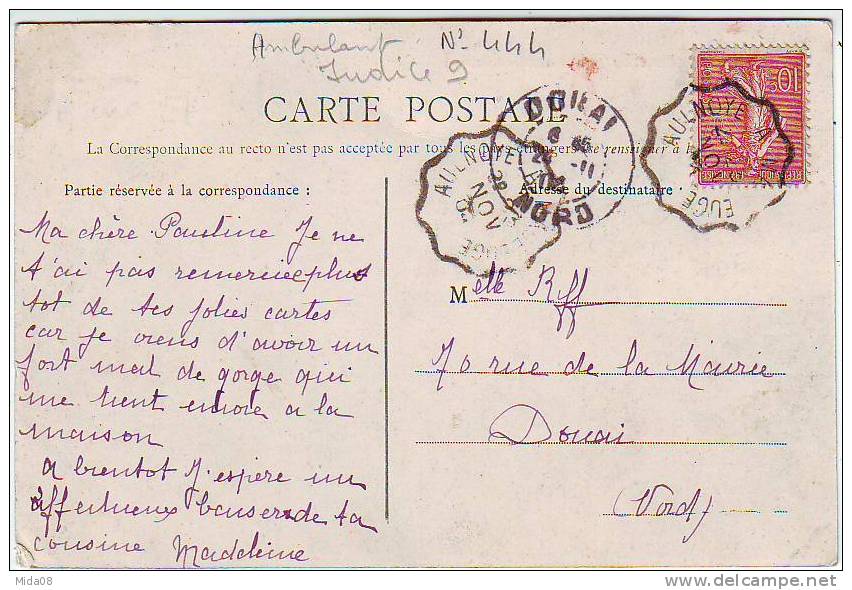 Ambulant Nº 444
Indice 9
CARTE POSTALE
La Correspondance au recto n'est pas acceptée par tous les pays étrangers (se renseigner à la
Partie réservée à la correspondance :
Adresse du destinataire
Ma chère Pauline Je ne
t'ai pas remerciée plus
tot de tes jolies cartes
car je viens d'avoir un
fort mal de gorge qui
me tient encore a la
maison
a bientot J'espère un
affectueux baiser de ta
cousine Madeleine
Melle Riff
70 rue de la Mairie
Douai
(Nord)
DOUAI
NORD
AULNOYE A
NOV
AULNOYE A
NOV
10
REPUBLIQUE FRANÇAISE
POSTES
Mida08
www.delcampe.net